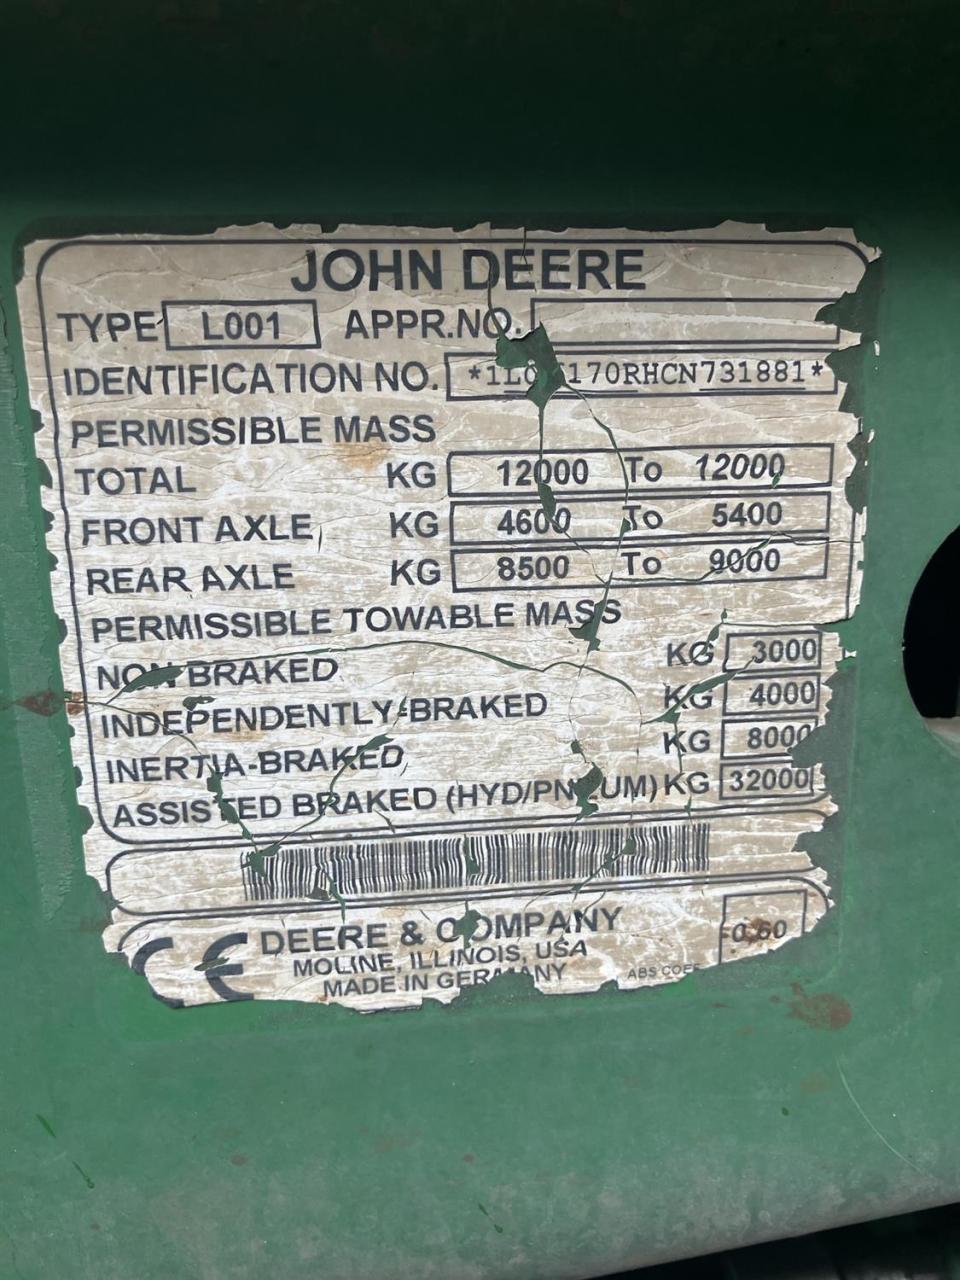 JOHN DEERE
TYPE L001 APPR.NO.
IDENTIFICATION NO.
PERMISSIBLE MASS
TOTAL KG 12000 To 12000
FRONT AXLE KG 4600 To 5400
REAR AXLE KG 8500 To 9000
PERMISSIBLE TOWABLE MASS
NON BRAKED KG 3000
INDEPENDENTLY-BRAKED KG 4000
INERTIA-BRAKED KG 8000
ASSISTED BRAKED (HYD/PNEUM) KG 32000
CE DEERE & COMPANY
MOLINE, ILLINOIS, USA
MADE IN GERMANY
0.60
ABS COEF